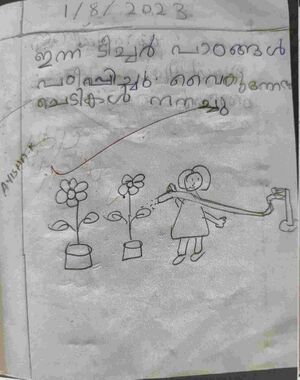 1/8/2023
ഇന്ന് ടീച്ചർ പാഠങ്ങൾ
പഠിപ്പിച്ചു. വൈകുന്നേരം
ചെടികൾ നനച്ചു